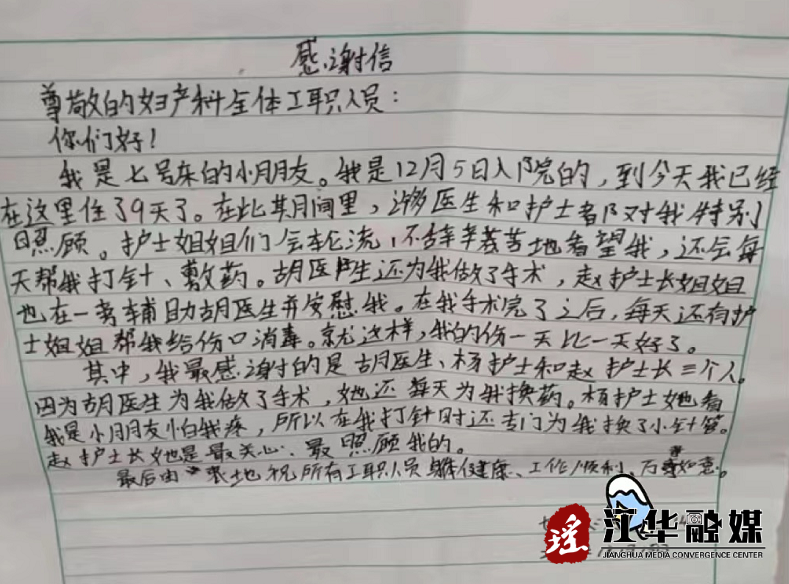 感谢信
尊敬的妇产科全体工职人员:
你们好!
我是七号床的小朋友。我是12月5日入院的,到今天我已经
在这里住了9天了。在此其间里,诊医生和护士都对我特别
照顾。护士姐姐们会轮流,不辞辛苦地看望我,还会每
天帮我打针、敷药。胡医生还为我做了手术,赵护士长姐姐
也在一旁辅助胡医生并安慰我。在我手术完了之后,每天还有护
士姐姐帮我给伤口消毒。就这样,我的伤一天比一天好了。
其中,我最感谢的是胡医生、杨护士和赵护士长三个人。
因为胡医生为我做了手术,她还每天为我换药。杨护士她看
我是小朋友怕我疼,所以在我打针时还专门为我换了小针管。
赵护士长她也是最关心、最照顾我的。
最后由衷地祝所有工职人员身体健康、工作顺利、万事如意。
瑶
江华融媒
JIANGHUA MEDIA CONVERGENCE CENTER